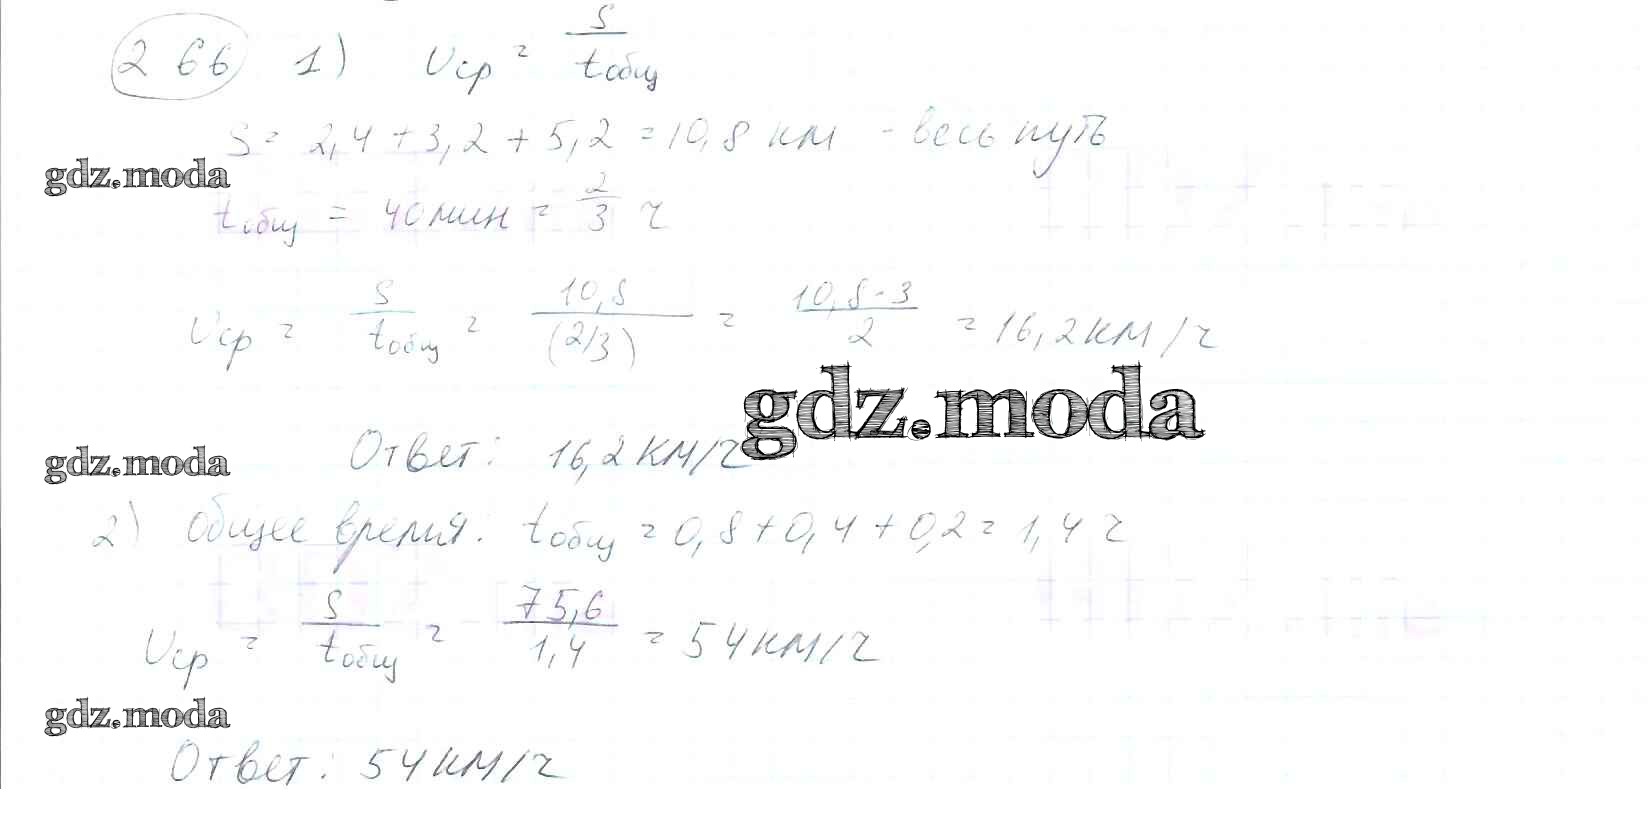 266 1) υср = S/tобщ
S = 2,4 + 3,2 + 5,2 = 10,8 км - весь путь
gdz.moda
tобщ = 40 мин = 2/3 ч
υср = S/tобщ = 10,8/(2/3) = 10,8·3/2 = 16,2 км/ч
gdz.moda
Ответ: 16,2 км/ч
gdz.moda
2) Общее время: tобщ = 0,8 + 0,4 + 0,2 = 1,4 ч
υср = S/tобщ = 75,6/1,4 = 54 км/ч
gdz.moda
Ответ: 54 км/ч